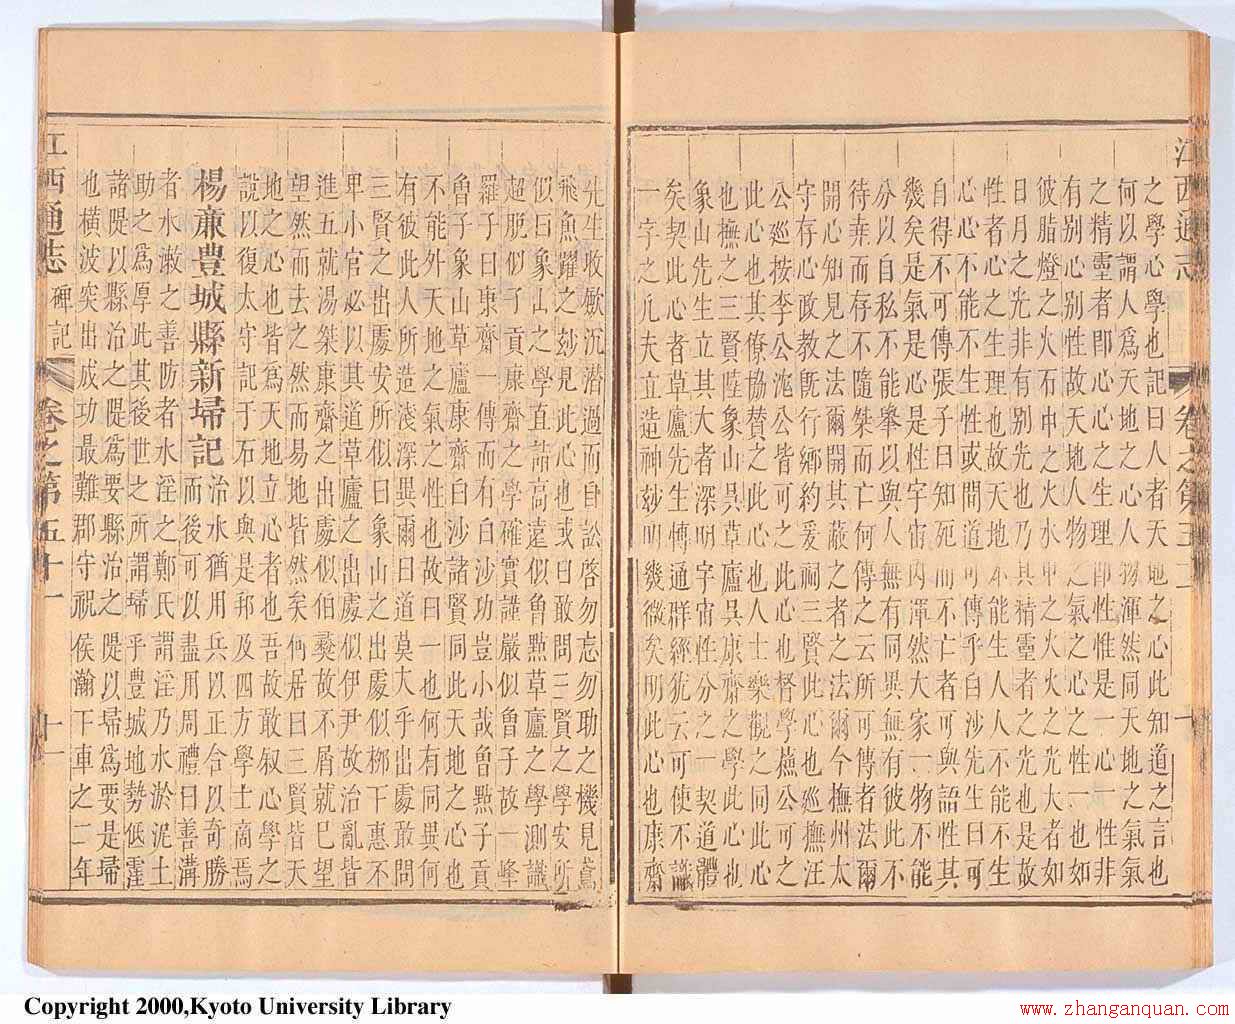 江西通志
卷之第五十一
十
之學心學也記曰人者天地之心此知道之言也
何以謂人爲天地之心人物渾然同天地之氣氣
之精靈者即心心之生理即性惟是一心一性非
有別心別性故天地人物之氣之心之性一也如
彼脂燈之火石中之火水中之火火之光大者如
日月之光非有別先也乃其精靈者之光也是故
性者心之生理也故天地不能生人人不能不生
心心不能不生性性或問道可傳乎白沙先生曰可
自得不可傳張子曰知死而不亡者可與語性其
幾矣是氣是心是性宇宙內渾然大家一物不能
分以自私不能舉以與人無有同異無有彼此不
待堯而存不隨桀而亡何傳之云所可傳者法爾
開心知見之法爾開其蔽之者之法爾今撫州太
守存心政教旣行鄉約爰祠三賢此心也廵撫汪
公廵按李公沱公皆可之此心也督學蘓公可之
此心也其僚協賛之此心也人士樂觀之同此心
也撫之三賢陸象山吳草廬吳康齋之學此心也
象山先生立其大者深明宇宙性分之一契道體
矣契此心者草廬先生愽通群經犹云可使不識
一字之凢夫立造神玅明幾微矣明此心也康齋
先生收歛沉潜過而自訟啓勿忘勿功之機見鳶
飛魚躍之玅見此心也或曰敢問三賢之學安所
似曰象山之學直詣高遠似魯㸃草廬之學測識
超脱似子貢康齋之學確實謹嚴似曾子故一峰
羅子曰康齋一傳而有白沙功豈小哉曾㸃子貢
魯子象山草廬康齋白沙諸賢同此天地之心也
不能外天地之氣之性也故曰一也何有同異何
有彼此人所造淺深異爾曰道莫大乎出處敢問
三賢之出處安所似曰象山之出處似栁下惠不
卑小官必以其道草廬之出處似伊尹故治亂皆
進五就湯桀康齋之出處似伯夷故不屑就巳望
望然而去之然而易地皆然矣何居曰三賢皆天
地之心也皆爲天地立心者也吾故敢叙心學之
說以復太守記于石以與是邦及四方學士商焉
楊㢘豊城縣新埽記
而後可以盡用周禮曰善溝
治水猶用兵以正合以奇勝
者水漱之善防者水淫之鄭氏謂淫乃水淤泥土
助之爲厚此其後世之所謂埽乎豊城地勢低窪
諸隄以縣治之隄爲要縣治之隄以埽爲要是埽
也橫波突出成功最難郡守祝侯瀚下車之二年
江西通志
碑記
卷之第五十一
十一
Copyright 2000,Kyoto University Library
www.zhanganquan.com